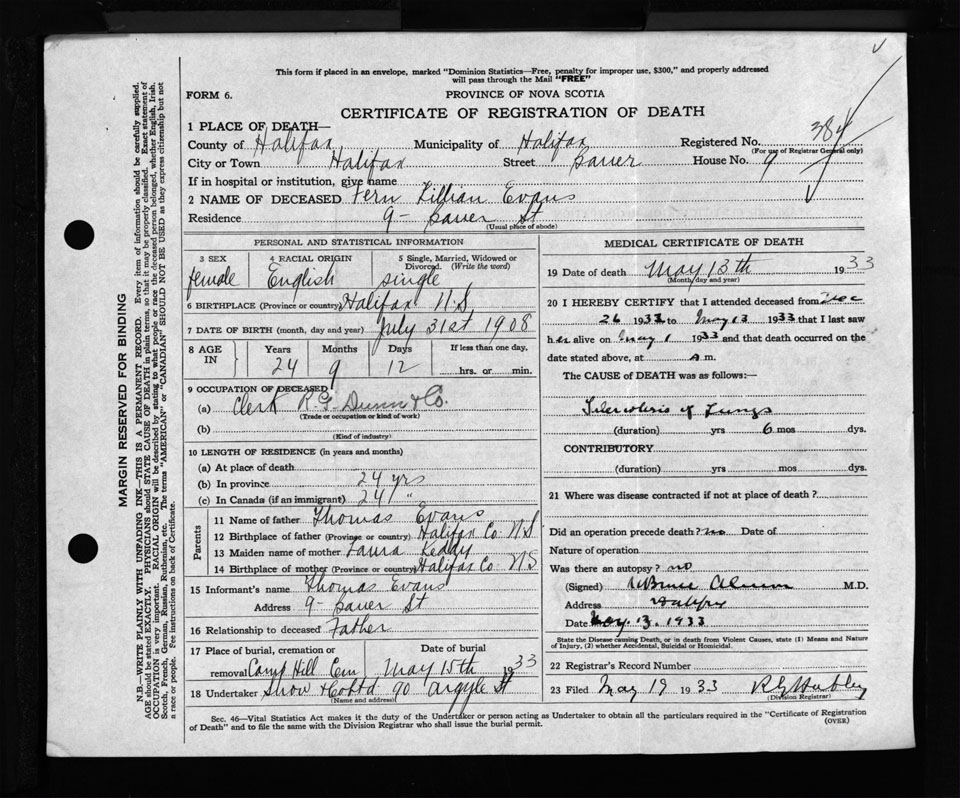 This form if placed in an envelope, marked "Dominion Statistics—Free, penalty for improper use, $300," and properly addressed
will pass through the Mail "FREE"
FORM 6.
PROVINCE OF NOVA SCOTIA
CERTIFICATE OF REGISTRATION OF DEATH
1 PLACE OF DEATH—
County of Halifax Municipality of Halifax Registered No. 384
(For use of Registrar General only)
City or Town Halifax Street House No. 9
If in hospital or institution, give name
2 NAME OF DECEASED Fern Lillian Evans
Residence 9- St
(Usual place of abode)
PERSONAL AND STATISTICAL INFORMATION
3 SEX female
4 RACIAL ORIGIN English
5 Single, Married, Widowed or Divorced. (Write the word) single
6 BIRTHPLACE (Province or country) Halifax N.S.
7 DATE OF BIRTH (month, day and year) July 31st, 1908
8 AGE IN Years 24 Months 9 Days 12 If less than one day, hrs. or min.
9 OCCUPATION OF DECEASED
(a) Clerk R G Dunn & Co.
(Trade or occupation or kind of work)
(b)
(Kind of industry)
10 LENGTH OF RESIDENCE (in years and months)
(a) At place of death
(b) In province 24 yrs
(c) In Canada (if an immigrant) 24 "
Parents
11 Name of father Thomas Evans
12 Birthplace of father (Province or country) Halifax Co. N S
13 Maiden name of mother Laura Keddy
14 Birthplace of mother (Province or country) Halifax Co N S
15 Informant's name Thomas Evans
Address 9- St
16 Relationship to deceased Father
17 Place of burial, cremation or removal Camp Hill Cem
Date of burial May 15th 1933
18 Undertaker Snow & Co Ltd 90 Argyle St
(Name and address)
MEDICAL CERTIFICATE OF DEATH
19 Date of death May 13th 1933
(Month, day and year)
20 I HEREBY CERTIFY that I attended deceased from Dec
26 1932 to May 13 1933 that I last saw
her alive on May 1 1933 and that death occurred on the
date stated above, at A m.
The CAUSE of DEATH was as follows:—
Tuberculosis of Lungs
(duration) yrs 6 mos dys.
CONTRIBUTORY
(duration) yrs mos dys.
21 Where was disease contracted if not at place of death ?
Did an operation precede death? no Date of
Nature of operation
Was there an autopsy? no
(Signed) M.D.
Address Halifax
Date May 13, 1933
State the Disease causing Death, or in death from Violent Causes, state (1) Means and Nature
of Injury, (2) whether Accidental, Suicidal or Homicidal.
22 Registrar's Record Number
23 Filed May 19 1933
(Division Registrar)
Sec. 46—Vital Statistics Act makes it the duty of the Undertaker or person acting as Undertaker to obtain all the particulars required in the "Certificate of Registration
of Death" and to file the same with the Division Registrar who shall issue the burial permit.
(OVER)
MARGIN RESERVED FOR BINDING
N.B.—WRITE PLAINLY WITH UNFADING INK—THIS IS A PERMANENT RECORD. Every item of information should be carefully supplied.
AGE should be stated EXACTLY. PHYSICIANS should STATE CAUSE OF DEATH in plain terms, so that it may be properly classified. Exact statement of
OCCUPATION is very important. RACIAL ORIGIN will be described by stating to what people or race the deceased person belonged, whether English, Irish,
Scotch, French, German, Russian, Ruthenian, etc. The terms "AMERICAN" or "CANADIAN" SHOULD NOT BE USED as they express citizenship but not
a race or people. See instructions on back of Certificate.